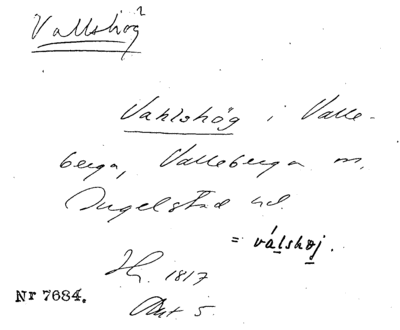 Vallshög²
Vahlshög i Valle-
berga, Valleberga sn,
Ingelstad hd.
=válshøj.
1817
Nr 7684.
Akt 5.